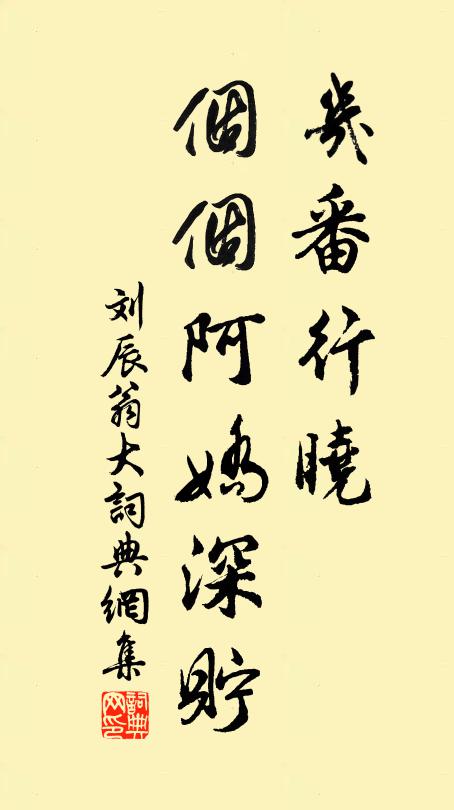 幾番行曉
個個阿嬌深貯
刘辰翁大詞典網集
詞典网印